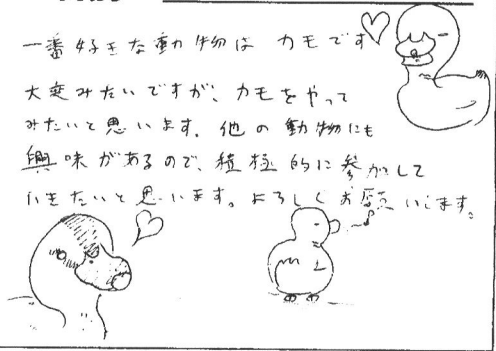 一番好きな動物は カモです
大変みたいですが、カモをやって
みたいと思います。他の動物にも
興味があるので、積極的に参加して
いきたいと思います。よろしくお願いします。